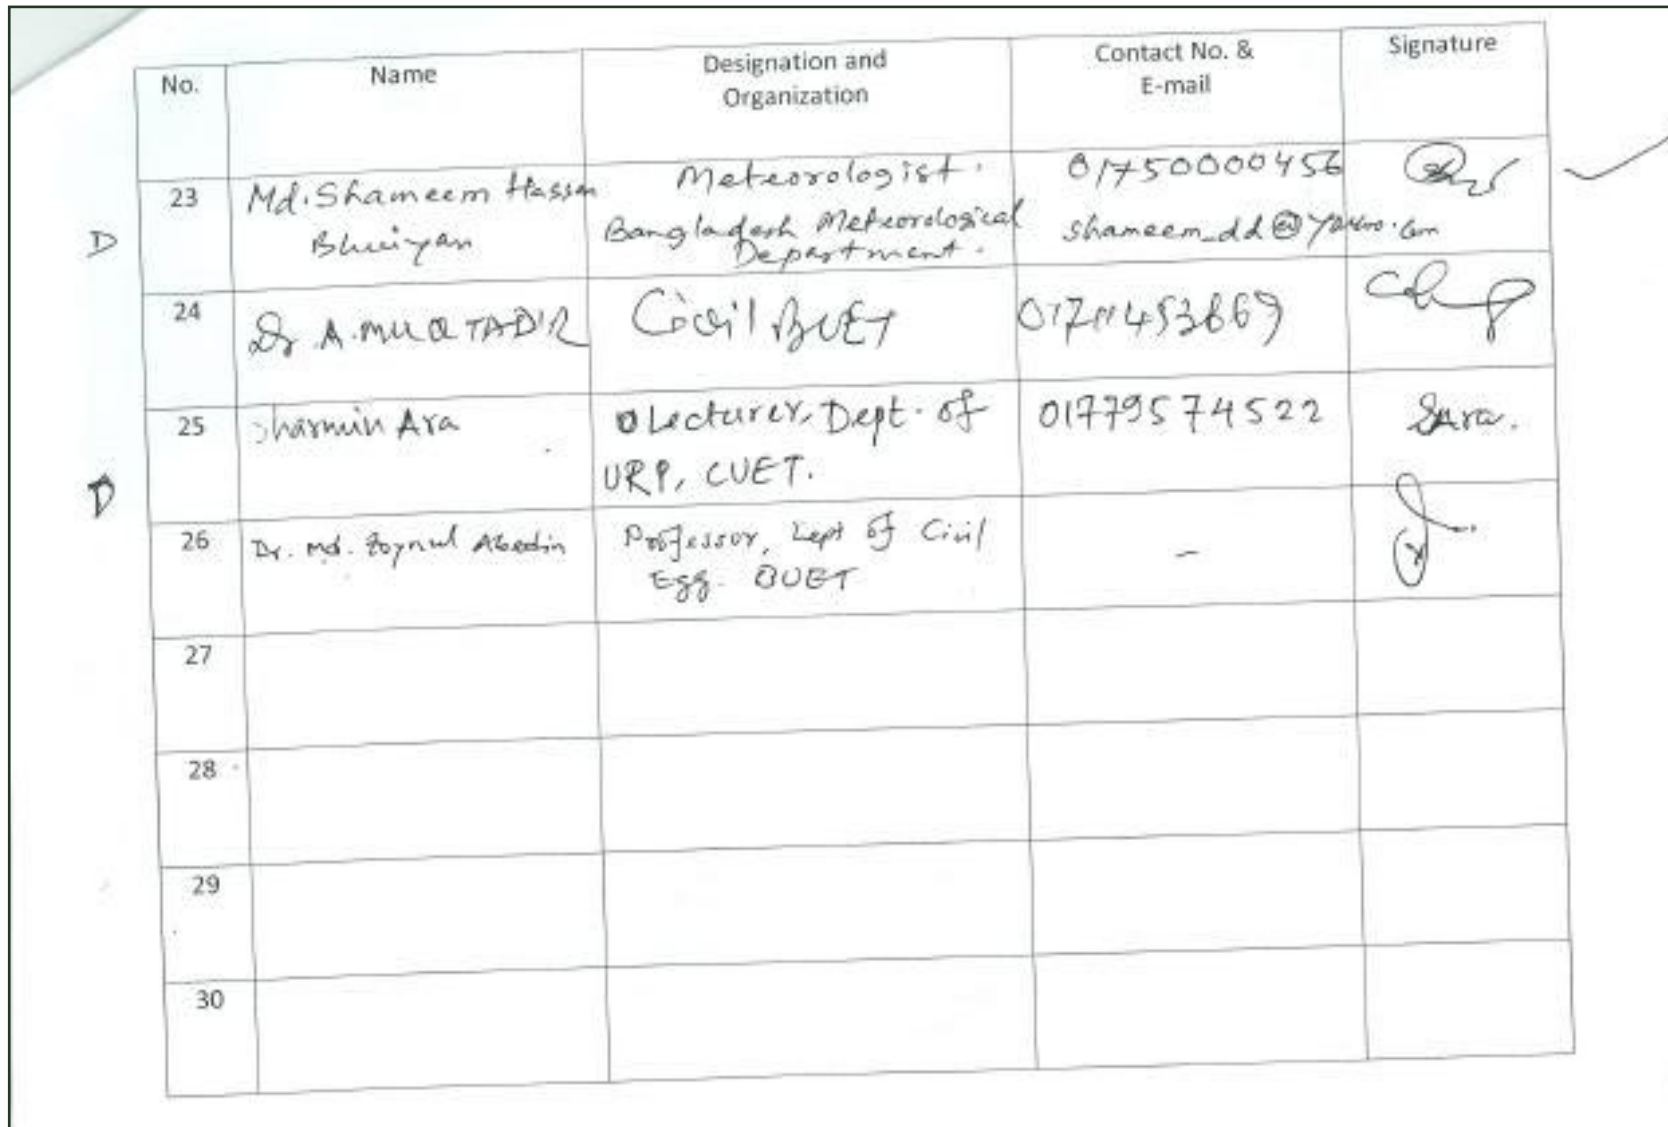 No. Name Designation and Organization Contact No. & E-mail Signature
23 Md. Shameem Hassan Bhuiyan Meteorologist. Bangladesh Meteorological Department. 01750000456 shameem_dd@yahoo.com
D
24 Dr. A. MUQTADIR Civil BUET
25 Sharmin Ara Lecturer, Dept. of URP, CUET. 01779574522 SAra.
D
26 Dr. Md. Zoynul Abedin Professor, Dept of Civil Egg. BUET -
27
28
29
30